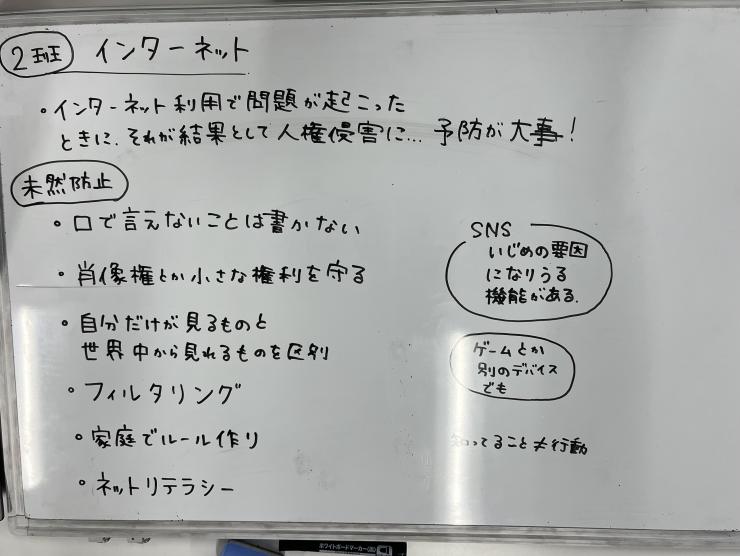 2班 インターネット
・インターネット利用で問題が起こった
ときに、それが結果として人権侵害に… 予防が大事!
未然防止
・口で言えないことは書かない
・肖像権とか小さな権利を守る
・自分だけが見るものと
世界中から見れるものを区別
・フィルタリング
・家庭でルール作り
・ネットリテラシー
SNS
いじめの要因
になりうる
機能がある.
ゲームとか
別のデバイス
でも
知ってること≠行動
ホワイトボードマーカー